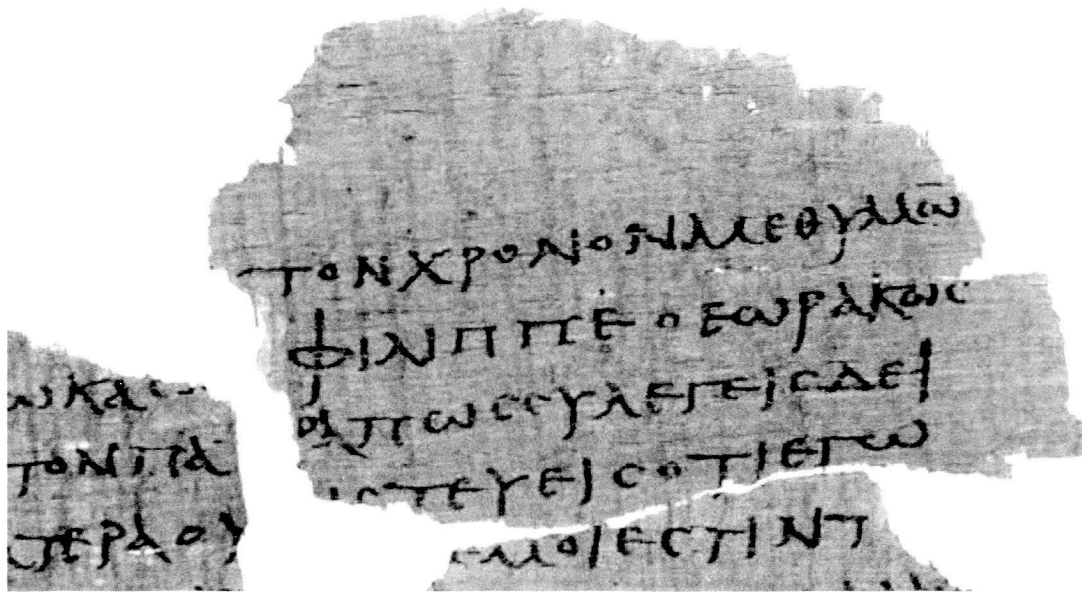 ΤΟΝΧΡΟΝΟΝΜΕΘΥΜΩ̄
ΦΙΛΙΠΠΕΟΕΩΡΑΚΩC
ΡΑΠΩCCΥΛΕΓΕΙCΔΕΙ
ΙCΤΕΥΕΙCΟΤΙΕΓΩ
ΕΜΟΙΕCΤΙΝΤ
ΝΚΑ
ΤΟΝΠΑ
ΤΕΡΑΟΥ